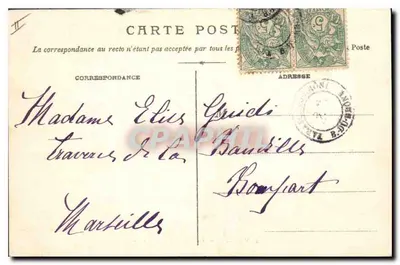 CARTE POST
La correspondance au recto n'étant pas acceptée par tous les p Poste
CORRESPONDANCE
ADRESSE
Madame Elise Guidi
Traverse de la Bandilles
Bompart
Marseille